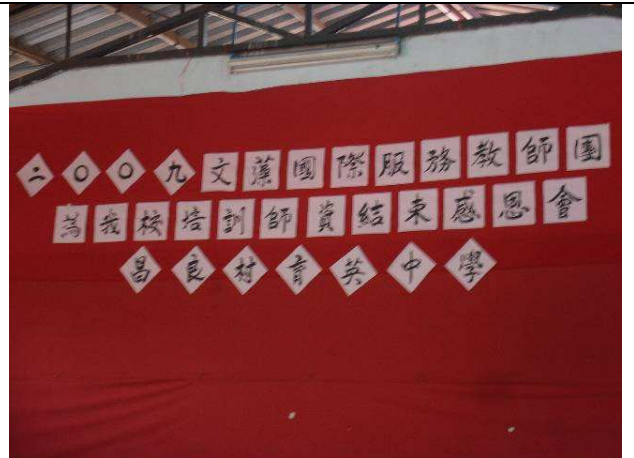 二〇〇九文藻國際服務教師團
為我校培訓師資結束感恩會
昌良村育英中學